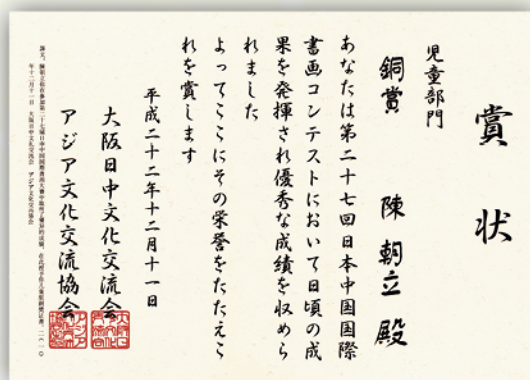 賞状
児童部門
銅賞 陳朝立殿
あなたは第二十七回日本中国国際
書画コンテストにおいて日頃の成
果を発揮され優秀な成績を収めら
れました
よってここにその栄誉をたたえこ
れを賞します
平成二十二年十二月十一日
大阪日中文化交流会
アジア文化交流協会
年十二月十一日 大阪日中文化交流会 アジア文化交流協会